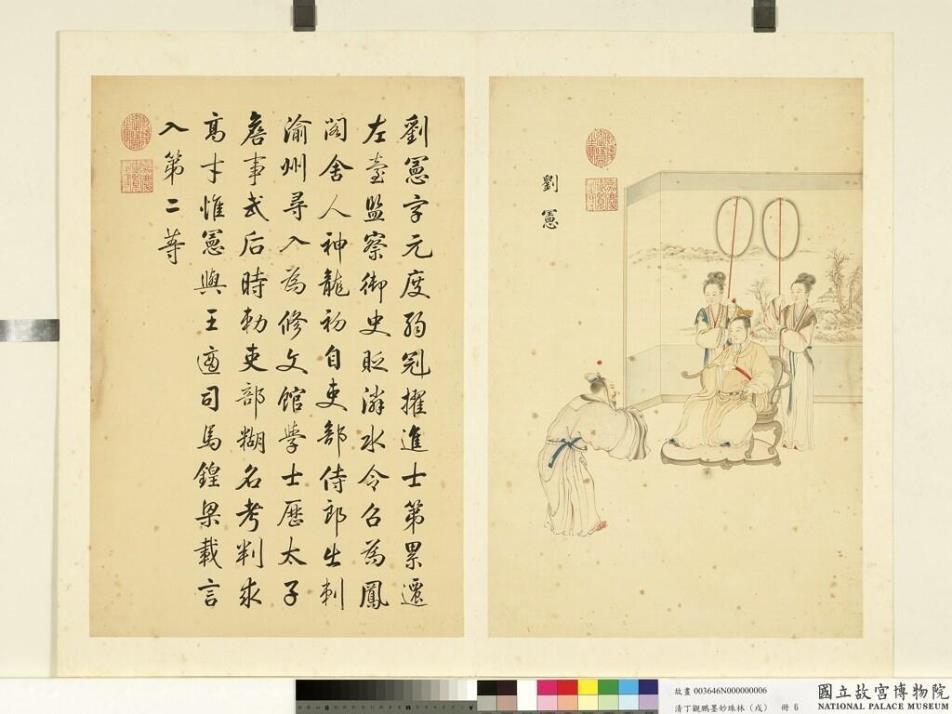 劉憲
劉憲字元度弱冠擢進士第累遷
左臺監察御史貶潾水令召為鳳
閣舍人神龍初自吏部侍郎出刺
渝州尋入為修文館學士歷太子
詹事武后時勅吏部糊名考判求
高才惟憲與王適司馬鍠梁載言
入第二等
故畫 003646N000000006
清丁觀鵬墨妙珠林（戌） 冊 6
國立故宮博物院
NATIONAL PALACE MUSEUM